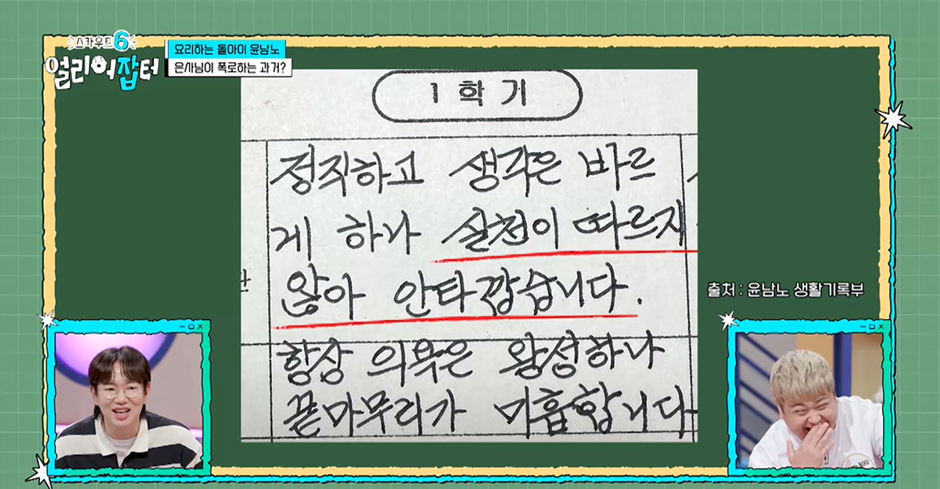 스카우트6
얼리어잡터
요리하는 돌아이 윤남노
은사님이 폭로하는 과거?
1 학 기
정직하고 생각은 바르
게 하나 실천이 따르지
않아 안타깝습니다.
항상 의욕은 왕성하나
끝마무리가 미흡합니다
출처 : 윤남노 생활기록부